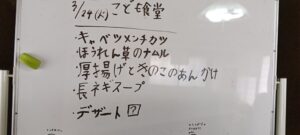 3/29(火)こども食堂
・キャベツメンチカツ
・ほうれん草のナムル
・厚揚げときのこのあんかけ
・長ネギスープ
・デザート?